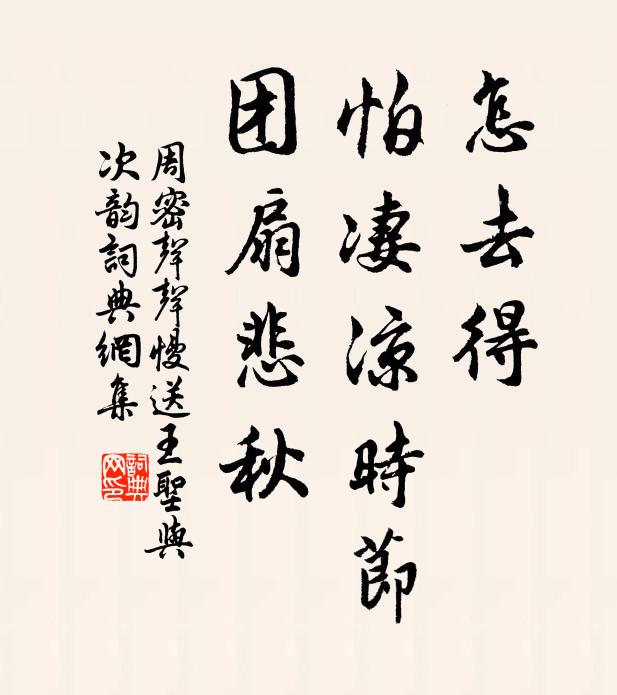 怎去得
怕凄涼時節
团扇悲秋
周密聲聲慢送王聖與
次韵詞典網集
詞典网印